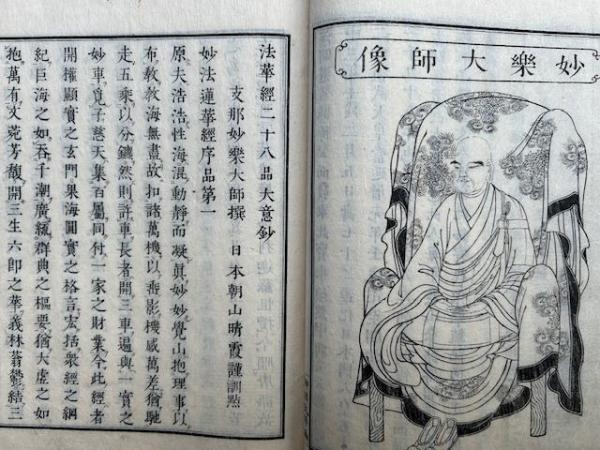 妙樂大師像
法華經二十八品大意鈔
支那妙樂大師撰 日本朝山晴霞謹訓點
妙法蓮華經序品第一
原夫浩浩性海浪動靜而凝眞妙妙覺山抱理事以
布教教海無盡故扣諸萬機以垂影機感萬差猶馳
走五乘以分鑣然則許車長者開三車遍與一實之
妙車覓子慈天集百屬同付一家之財業今此經者
開權顯實之玄門果海圓實之格言宏括衆經之綱
紀巨海之如吞千潮廣綜群典之樞要猶大虛之如
抱萬有文苑芳馥開三生六即之華義林蓊鬱結三